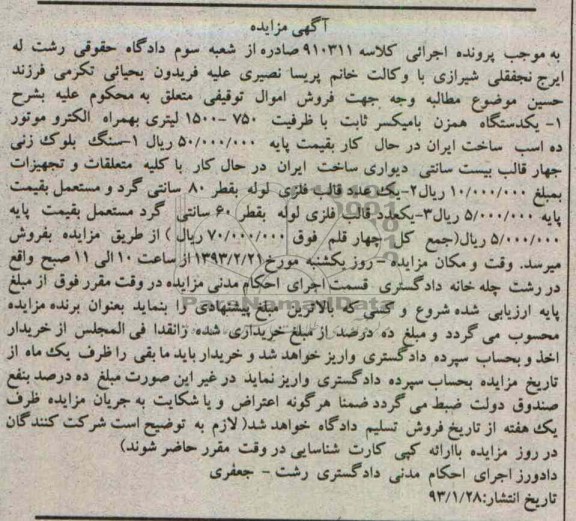 آگهی مزایده
به موجب پرونده اجرائی کلاسه ۹۱۰۳۱۱ صادره از شعبه سوم دادگاه حقوقی رشت له
ایرج نجفقلی شیرازی با وکالت خانم پریسا نصیری علیه فریدون یحیائی تکرمی فرزند
حسین موضوع مطالبه وجه جهت فروش اموال توقیفی متعلق به محکوم علیه بشرح
۱- یکدستگاه همزن بامیکسر ثابت با ظرفیت ۷۵۰ -۱۵۰۰ لیتری بهمراه الکترو موتور
ده اسب ساخت ایران در حال کار بقیمت پایه ۵۰/۰۰۰/۰۰۰ ریال ۱-سنگ بلوک زنی
چهار قالب بیست سانتی دیواری ساخت ایران در حال کار با کلیه متعلقات و تجهیزات
بمبلغ ۱۰/۰۰۰/۰۰۰ ریال۲-یک عدد قالب فلزی لوله بقطر ۸۰ سانتی گرد و مستعمل بقیمت
پایه ۵/۰۰۰/۰۰۰ ریال۳-یکعدد قالب فلزی لوله بقطر ۶۰ سانتی گرد مستعمل بقیمت پایه
۵/۰۰۰/۰۰۰ ریال(جمع کل چهار قلم فوق ۷۰/۰۰۰/۰۰۰ ریال ) از طریق مزایده بفروش
میرسد. وقت و مکان مزایده – روز یکشنبه مورخ ۱۳۹۳/۲/۲۱ از ساعت ۱۰ الی ۱۱ صبح واقع
در رشت چله خانه دادگستری قسمت اجرای احکام مدنی مزایده در وقت مقرر فوق از مبلغ
پایه ارزیابی شده شروع و کسی که بالاترین مبلغ پیشنهادی را بنماید بعنوان برنده مزایده
محسوب می گردد و مبلغ ده درصد از مبلغ خریداری شده رانقدا فی المجلس از خریدار
اخذ و بحساب سپرده دادگستری واریز خواهد شد و خریدار باید ما بقی را ظرف یک ماه از
تاریخ مزایده بحساب سپرده دادگستری واریز نماید در غیر این صورت مبلغ ده درصد بنفع
صندوق دولت ضبط می گردد ضمنا هرگونه اعتراض و یا شکایت به جریان مزایده ظرف
یک هفته از تاریخ فروش تسلیم دادگاه خواهد شد( لازم به توضیح است شرکت کنندگان
در روز مزایده باارائه کپی کارت شناسایی در وقت مقرر حاضر شوند)
دادورز اجرای احکام مدنی دادگستری رشت – جعفری
تاریخ انتشار:۹۳/۱/۲۸